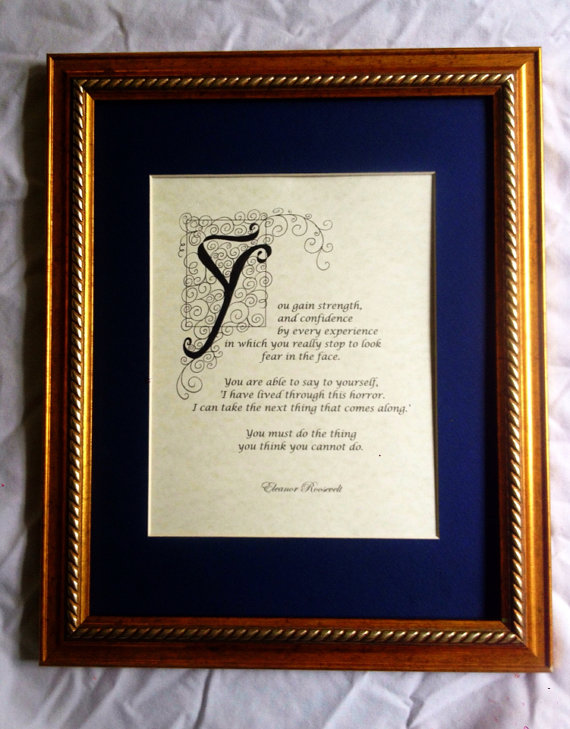 You gain strength,
and confidence
by every experience
in which you really stop to look
fear in the face.
You are able to say to yourself,
'I have lived through this horror.
I can take the next thing that comes along.'
You must do the thing
you think you cannot do.
Eleanor Roosevelt